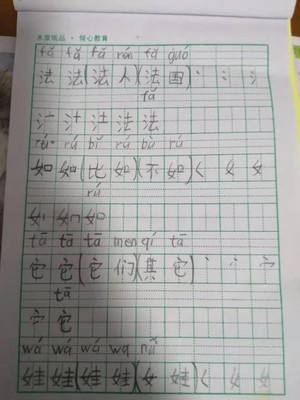 木浆纸品 · 倾心教育
fǎ fǎ fǎ rén fǎ guó
法 法(法 人)(法 国)丶 氵 氵
fǎ
氵 汁 法 法 法
rú rú bǐ rú bù rú
如 如(比 如)(不 如)く 女 女
rú
如 如 如
tā tā tā men qí tā
它 它(它 们)(其 它)丶 丷 宀
tā
宀 它
wá wá wá wa nǚ
娃 娃(娃 娃)(女 娃)く 女 女